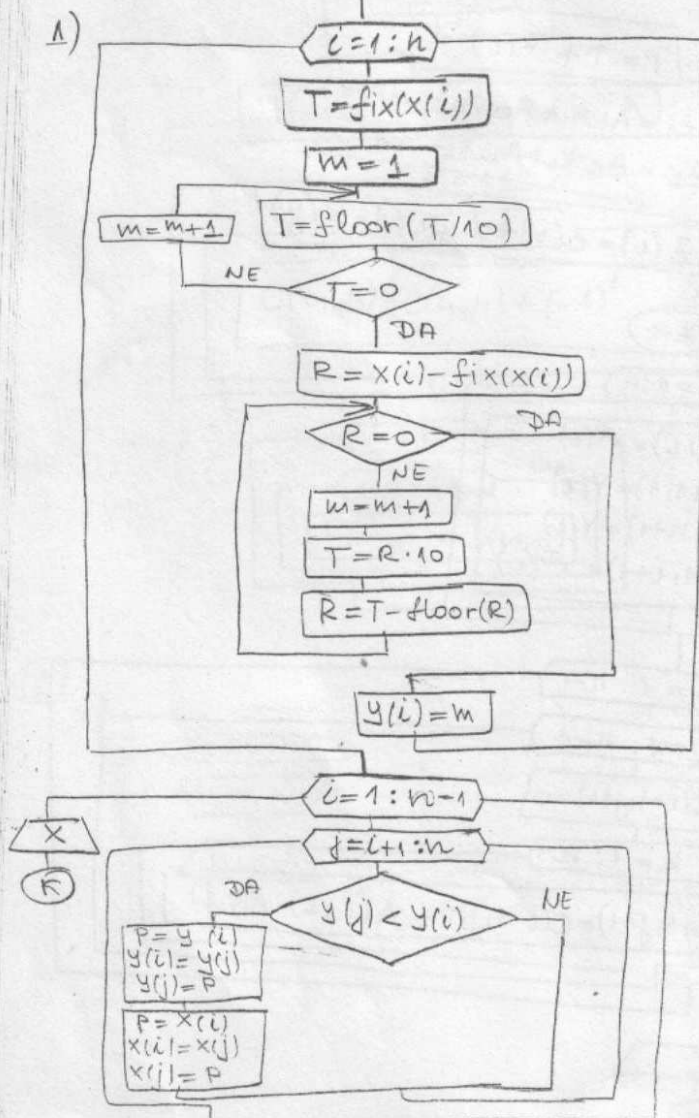 1)
i=1:n
T=fix(x(i))
m=1
m=m+1
T=floor(T/10)
NE
T=0
DA
R=x(i)-fix(x(i))
DA
R=0
NE
m=m+1
T=R·10
R=T-floor(R)
y(i)=m
i=1:n-1
X
j=i+1:n
K
DA
NE
y(j)<y(i)
P=y(i)
y(i)=y(j)
y(j)=P
P=x(i)
x(i)=x(j)
x(j)=P